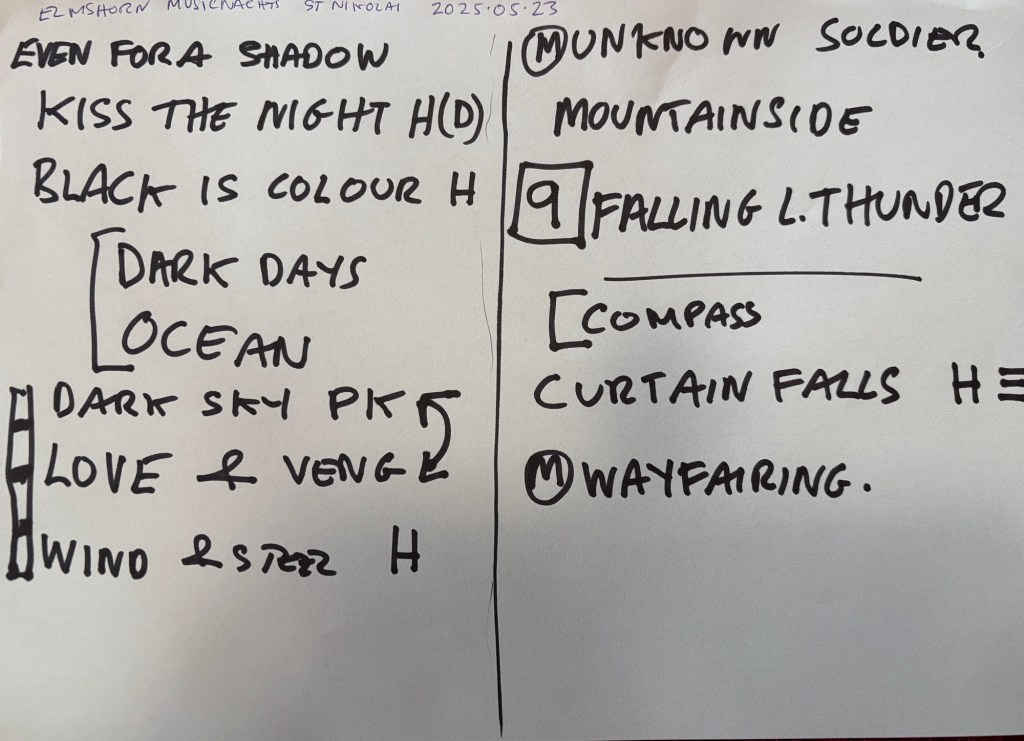 ELMSHORN MUSICNACHTS ST NIKOLAI 2025.05.23
EVEN FOR A SHADOW
KISS THE NIGHT H(D)
BLACK IS COLOUR H
DARK DAYS
OCEAN
DARK SKY PK
LOVE & VENG
WIND & STEEL H
M UNKNOWN SOLDIER
MOUNTAINSIDE
9 FALLING L. THUNDER
COMPASS
CURTAIN FALLS H
M WAYFAIRING.